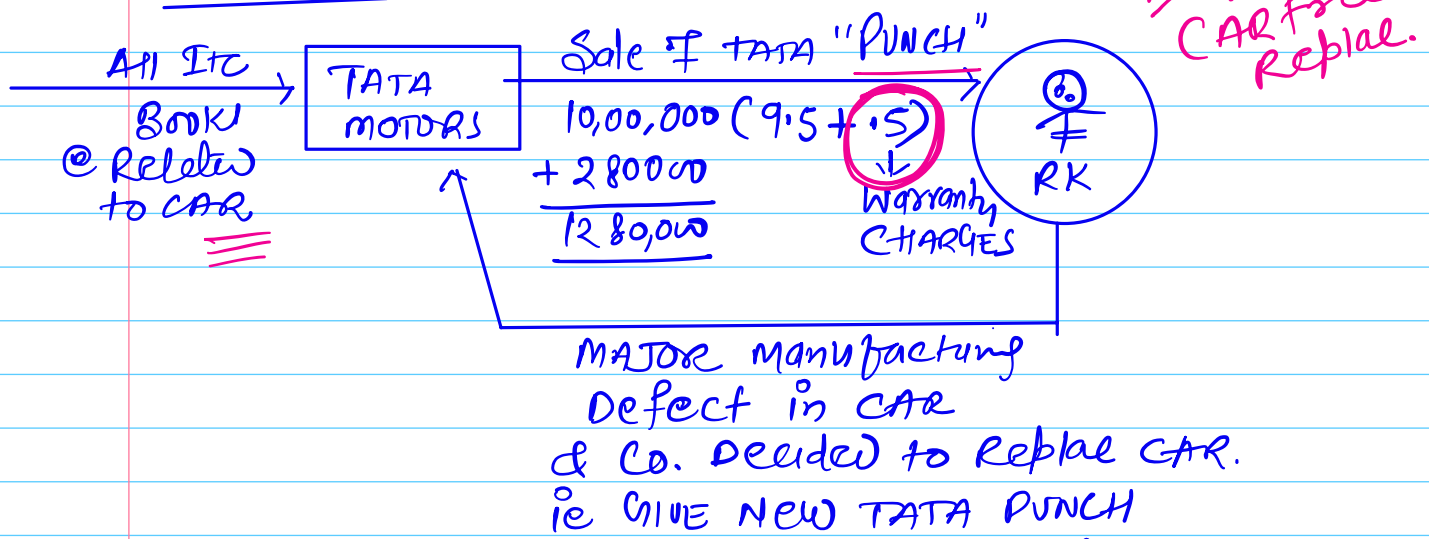 CAR free
Replae.
All ITC
Booki
@ Releted
to CAR
TATA
MOTORS
Sale of TATA "PUNCH"
10,00,000 (9.5 + .5)
+ 280000
1280,000
Warranty
CHARGES
RK
MAJOR Manufacturing
Defect in CAR
& Co. Decided to Replae CAR.
ie GIVE NEW TATA PUNCH